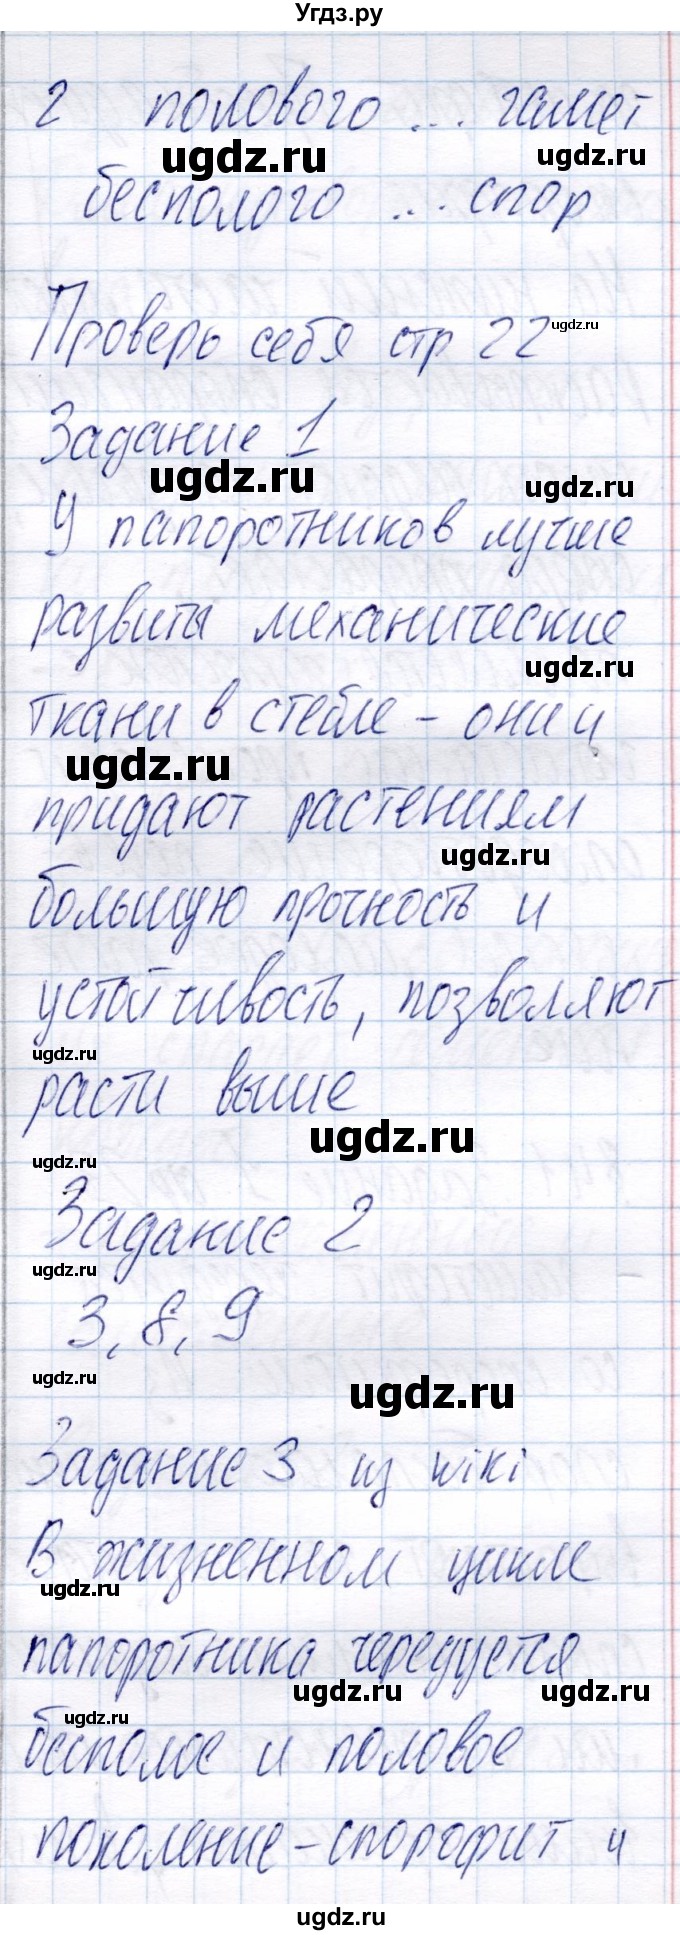 Угдз.ру
2 полового ... гамет
ugdz.ru
ugdz.ru
бесполого ... спор
Проверь себя стр 22
ugdz.ru
Задание 1
ugdz.ru
ugdz.ru
У папоротников лучше
развиты механические
ugdz.ru
ткани в стебле - они и
ugdz.ru
придают растениям
ugdz.ru
большую прочность и
устойчивость, позволяют
ugdz.ru
расти выше
ugdz.ru
ugdz.ru
Задание 2
ugdz.ru
3, 8, 9
ugdz.ru
ugdz.ru
Задание 3 из wiki
В жизненном цикле
ugdz.ru
папоротника чередуется
ugdz.ru
ugdz.ru
ugdz.ru
бесполое и половое
поколение - спорофит и
ugdz.ru